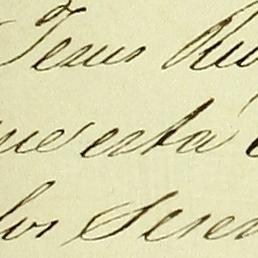 Jesus Ru
ue está
los Sere